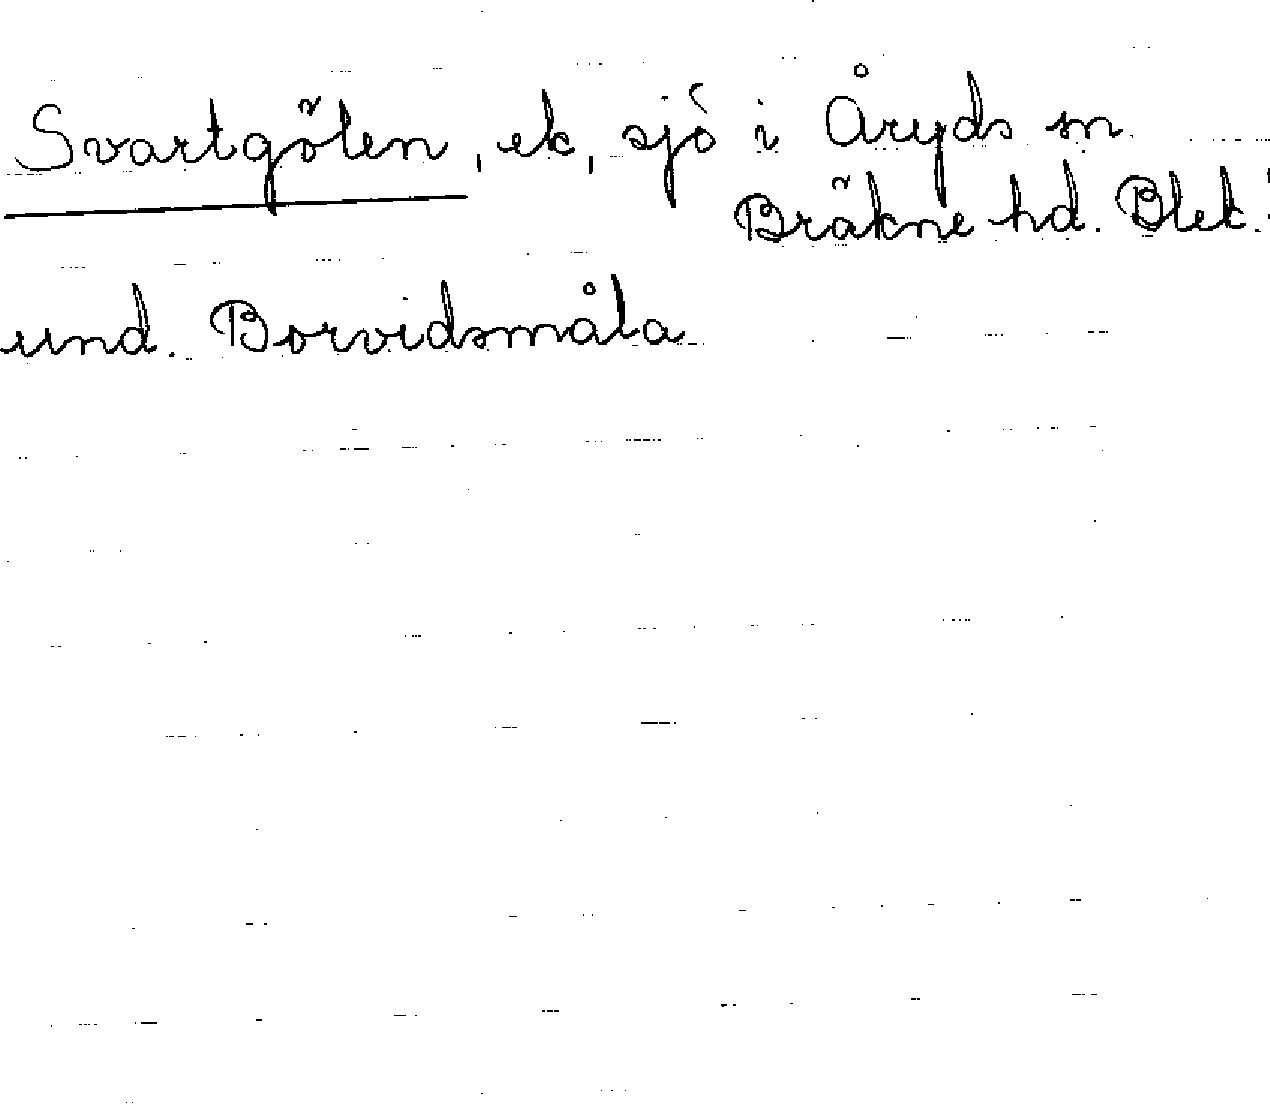 Svartgölen, ek, sjö i Åryds sn.
Bräkne hd. Blek.
und. Borvidsmåla